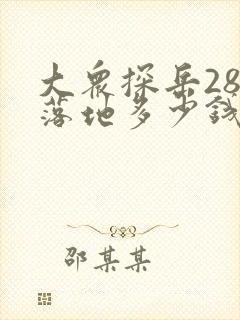 大众探岳28
落地多少钱
邵某某